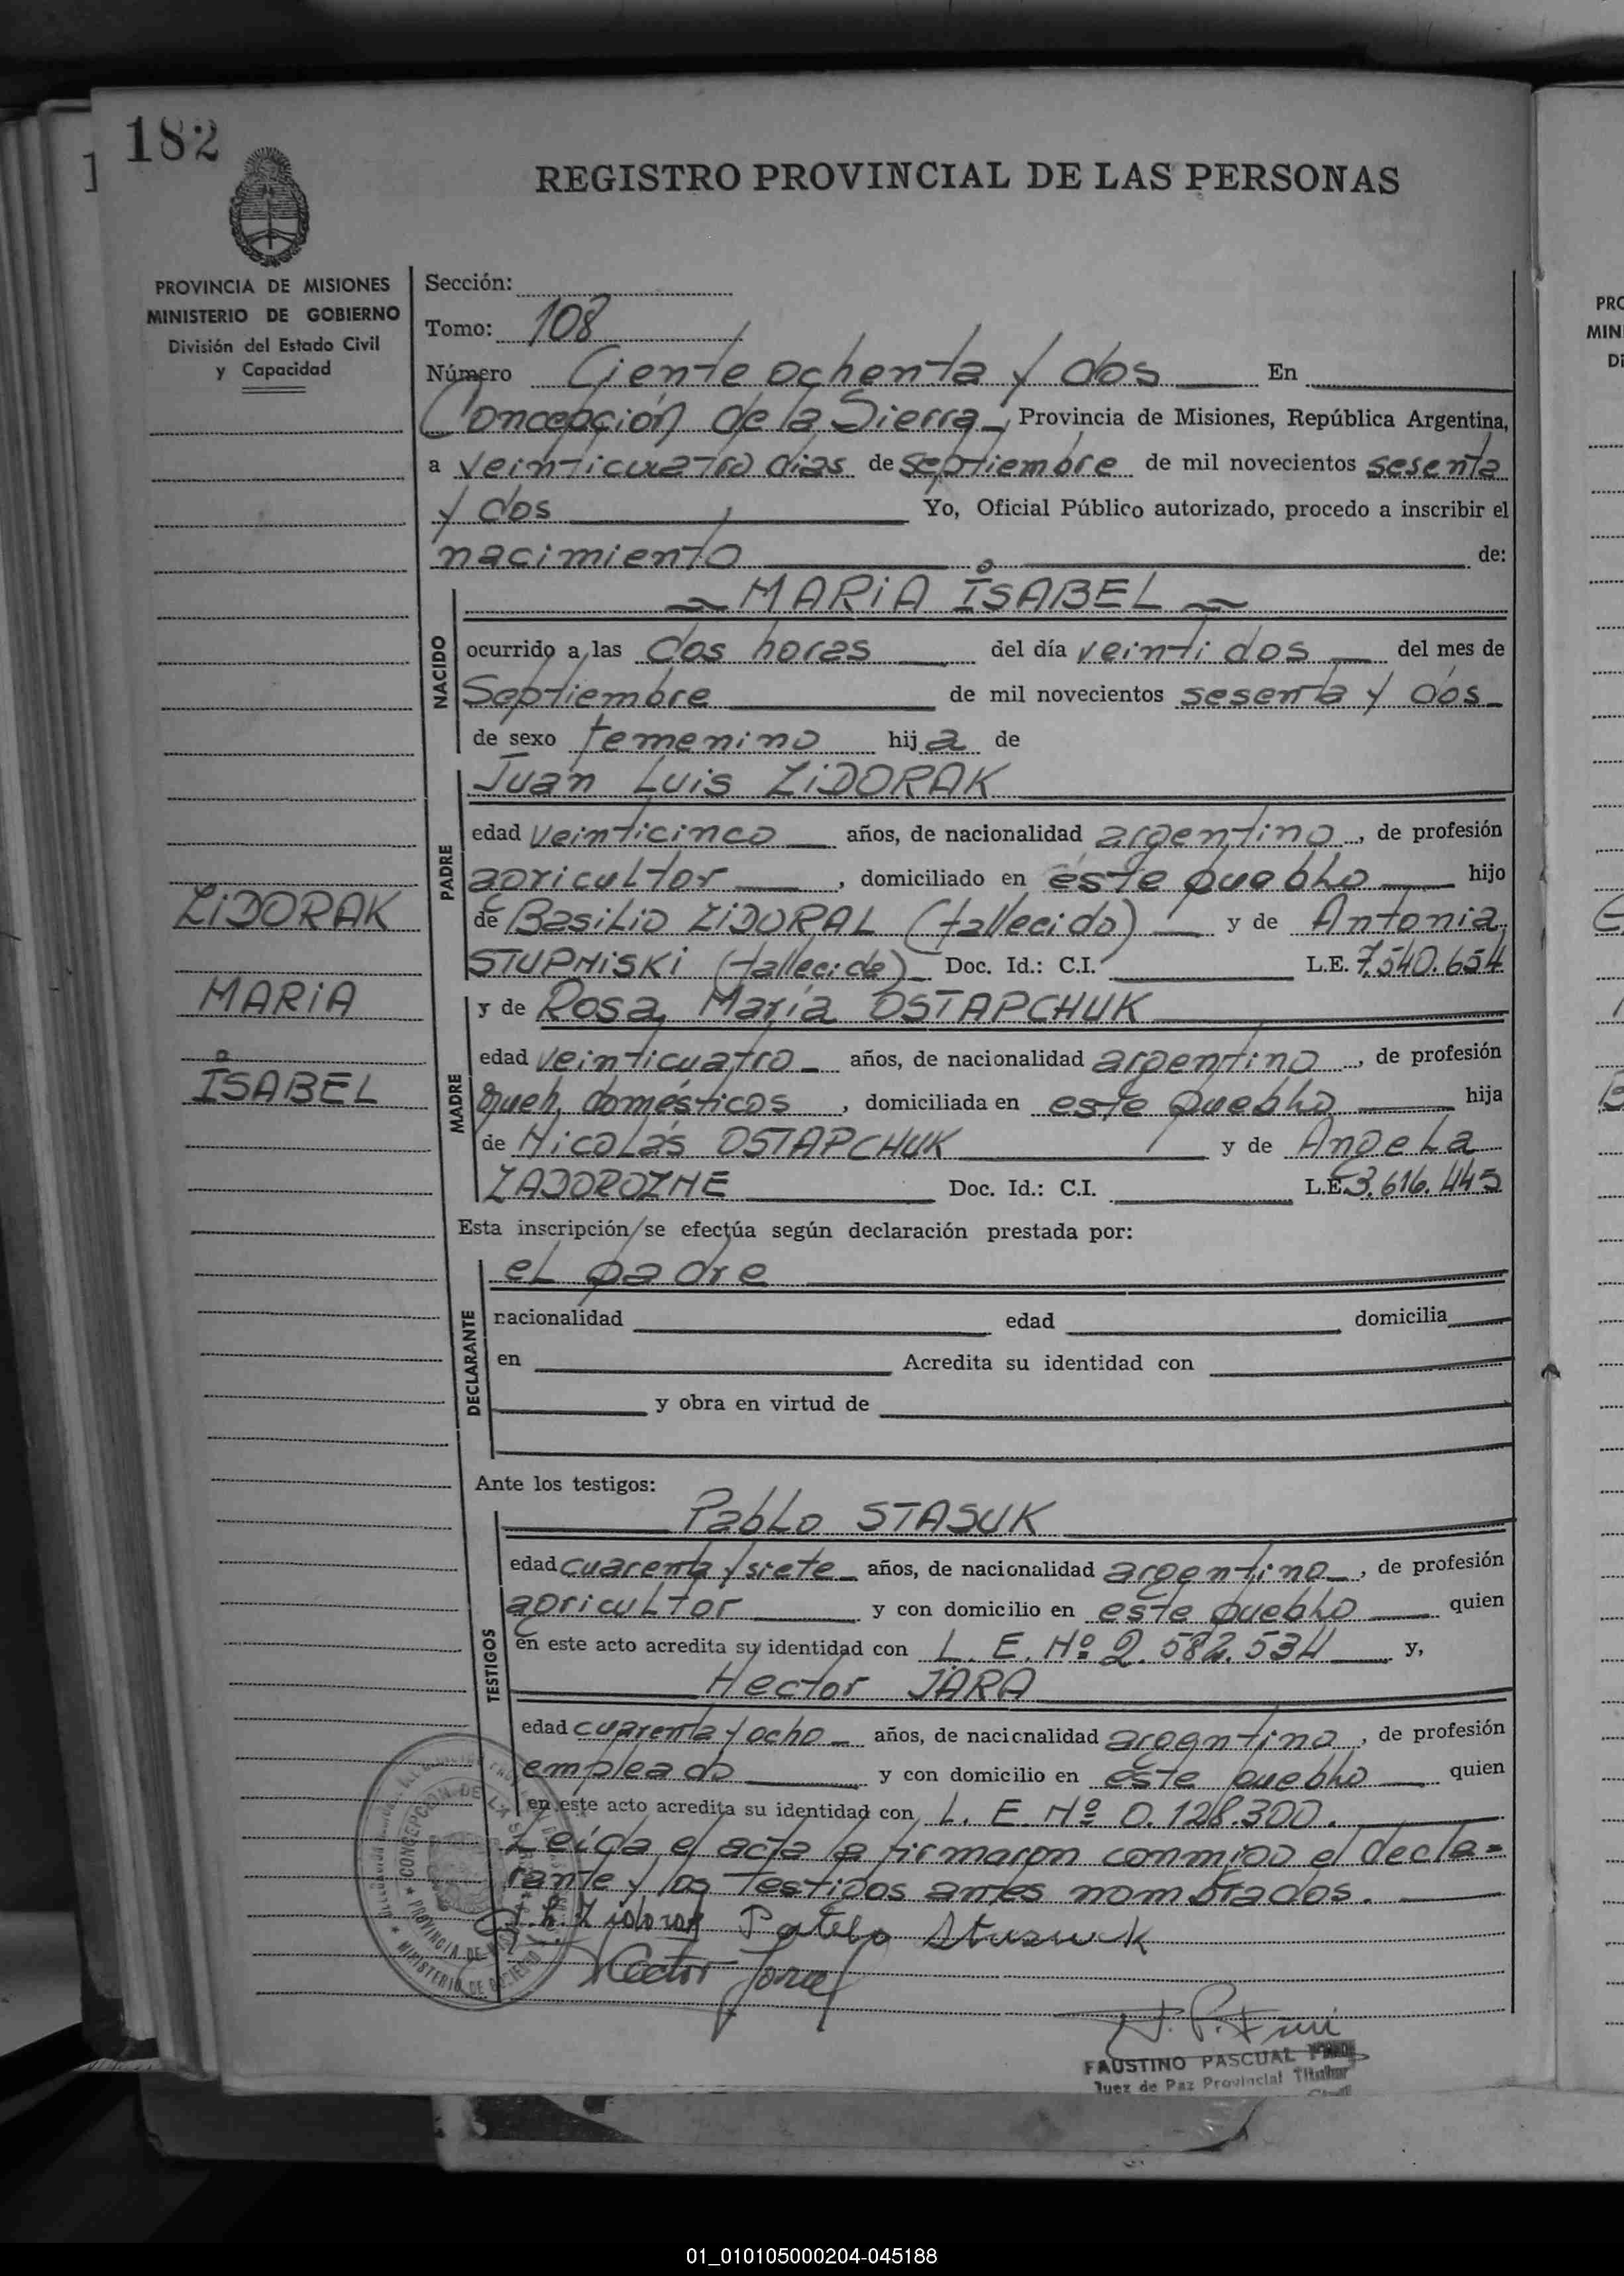 182
REGISTRO PROVINCIAL DE LAS PERSONAS
PROVINCIA DE MISIONES
MINISTERIO DE GOBIERNO
División del Estado Civil
y Capacidad
Sección:
Tomo: 108
Número Ciento ochenta y dos En
Concepción de la Sierra, Provincia de Misiones, República Argentina,
a veinticuatro dias de septiembre de mil novecientos sesenta
y dos Yo, Oficial Público autorizado, procedo a inscribir el
nacimiento de:
NACIDO
MARIA ISABEL
ocurrido a las dos horas del día veinti dos del mes de
Septiembre de mil novecientos sesenta y dos
de sexo femenino hija de
PADRE
Juan Luis ZIDORAK
edad veinticinco años, de nacionalidad argentino, de profesión
agricultor, domiciliado en éste pueblo hijo
de Basilio ZIDORAL (fallecido) y de Antonia
STUPNISKI (fallecida) Doc. Id.: C.I. L.E. 7.540.654
ZIDORAK
MARIA
ISABEL
MADRE
y de Rosa María OSTAPCHUK
edad veinticuatro años, de nacionalidad argentino, de profesión
queh. domésticos, domiciliada en este pueblo hija
de Nicolás OSTAPCHUK y de Angela
ZADOROZNE Doc. Id.: C.I. L.E. 3.616.445
Esta inscripción se efectúa según declaración prestada por:
DECLARANTE
el padre
nacionalidad edad domicilia
en Acredita su identidad con
y obra en virtud de
Ante los testigos:
TESTIGOS
Pablo STASUK
edad cuarenta y siete años, de nacionalidad argentino, de profesión
agricultor y con domicilio en este pueblo quien
en este acto acredita su identidad con L. E. Nº 2.582.534 y,
Hector JARA
edad cuarenta y ocho años, de nacionalidad argentino, de profesión
empleado y con domicilio en este pueblo quien
en este acto acredita su identidad con L. E. Nº 0.128.300.
Leída el acta la firmaron conmigo el decla=
rante y los testigos antes nombrados.
J. L. Zidorak Pablo Stasuk
Hector Jara
CONCEPCION DE LA
PROVINCIA DE
MINISTERIO DE GOBIERNO
FAUSTINO PASCUAL
Juez de Paz Provincial Titular
01_010105000204-045188